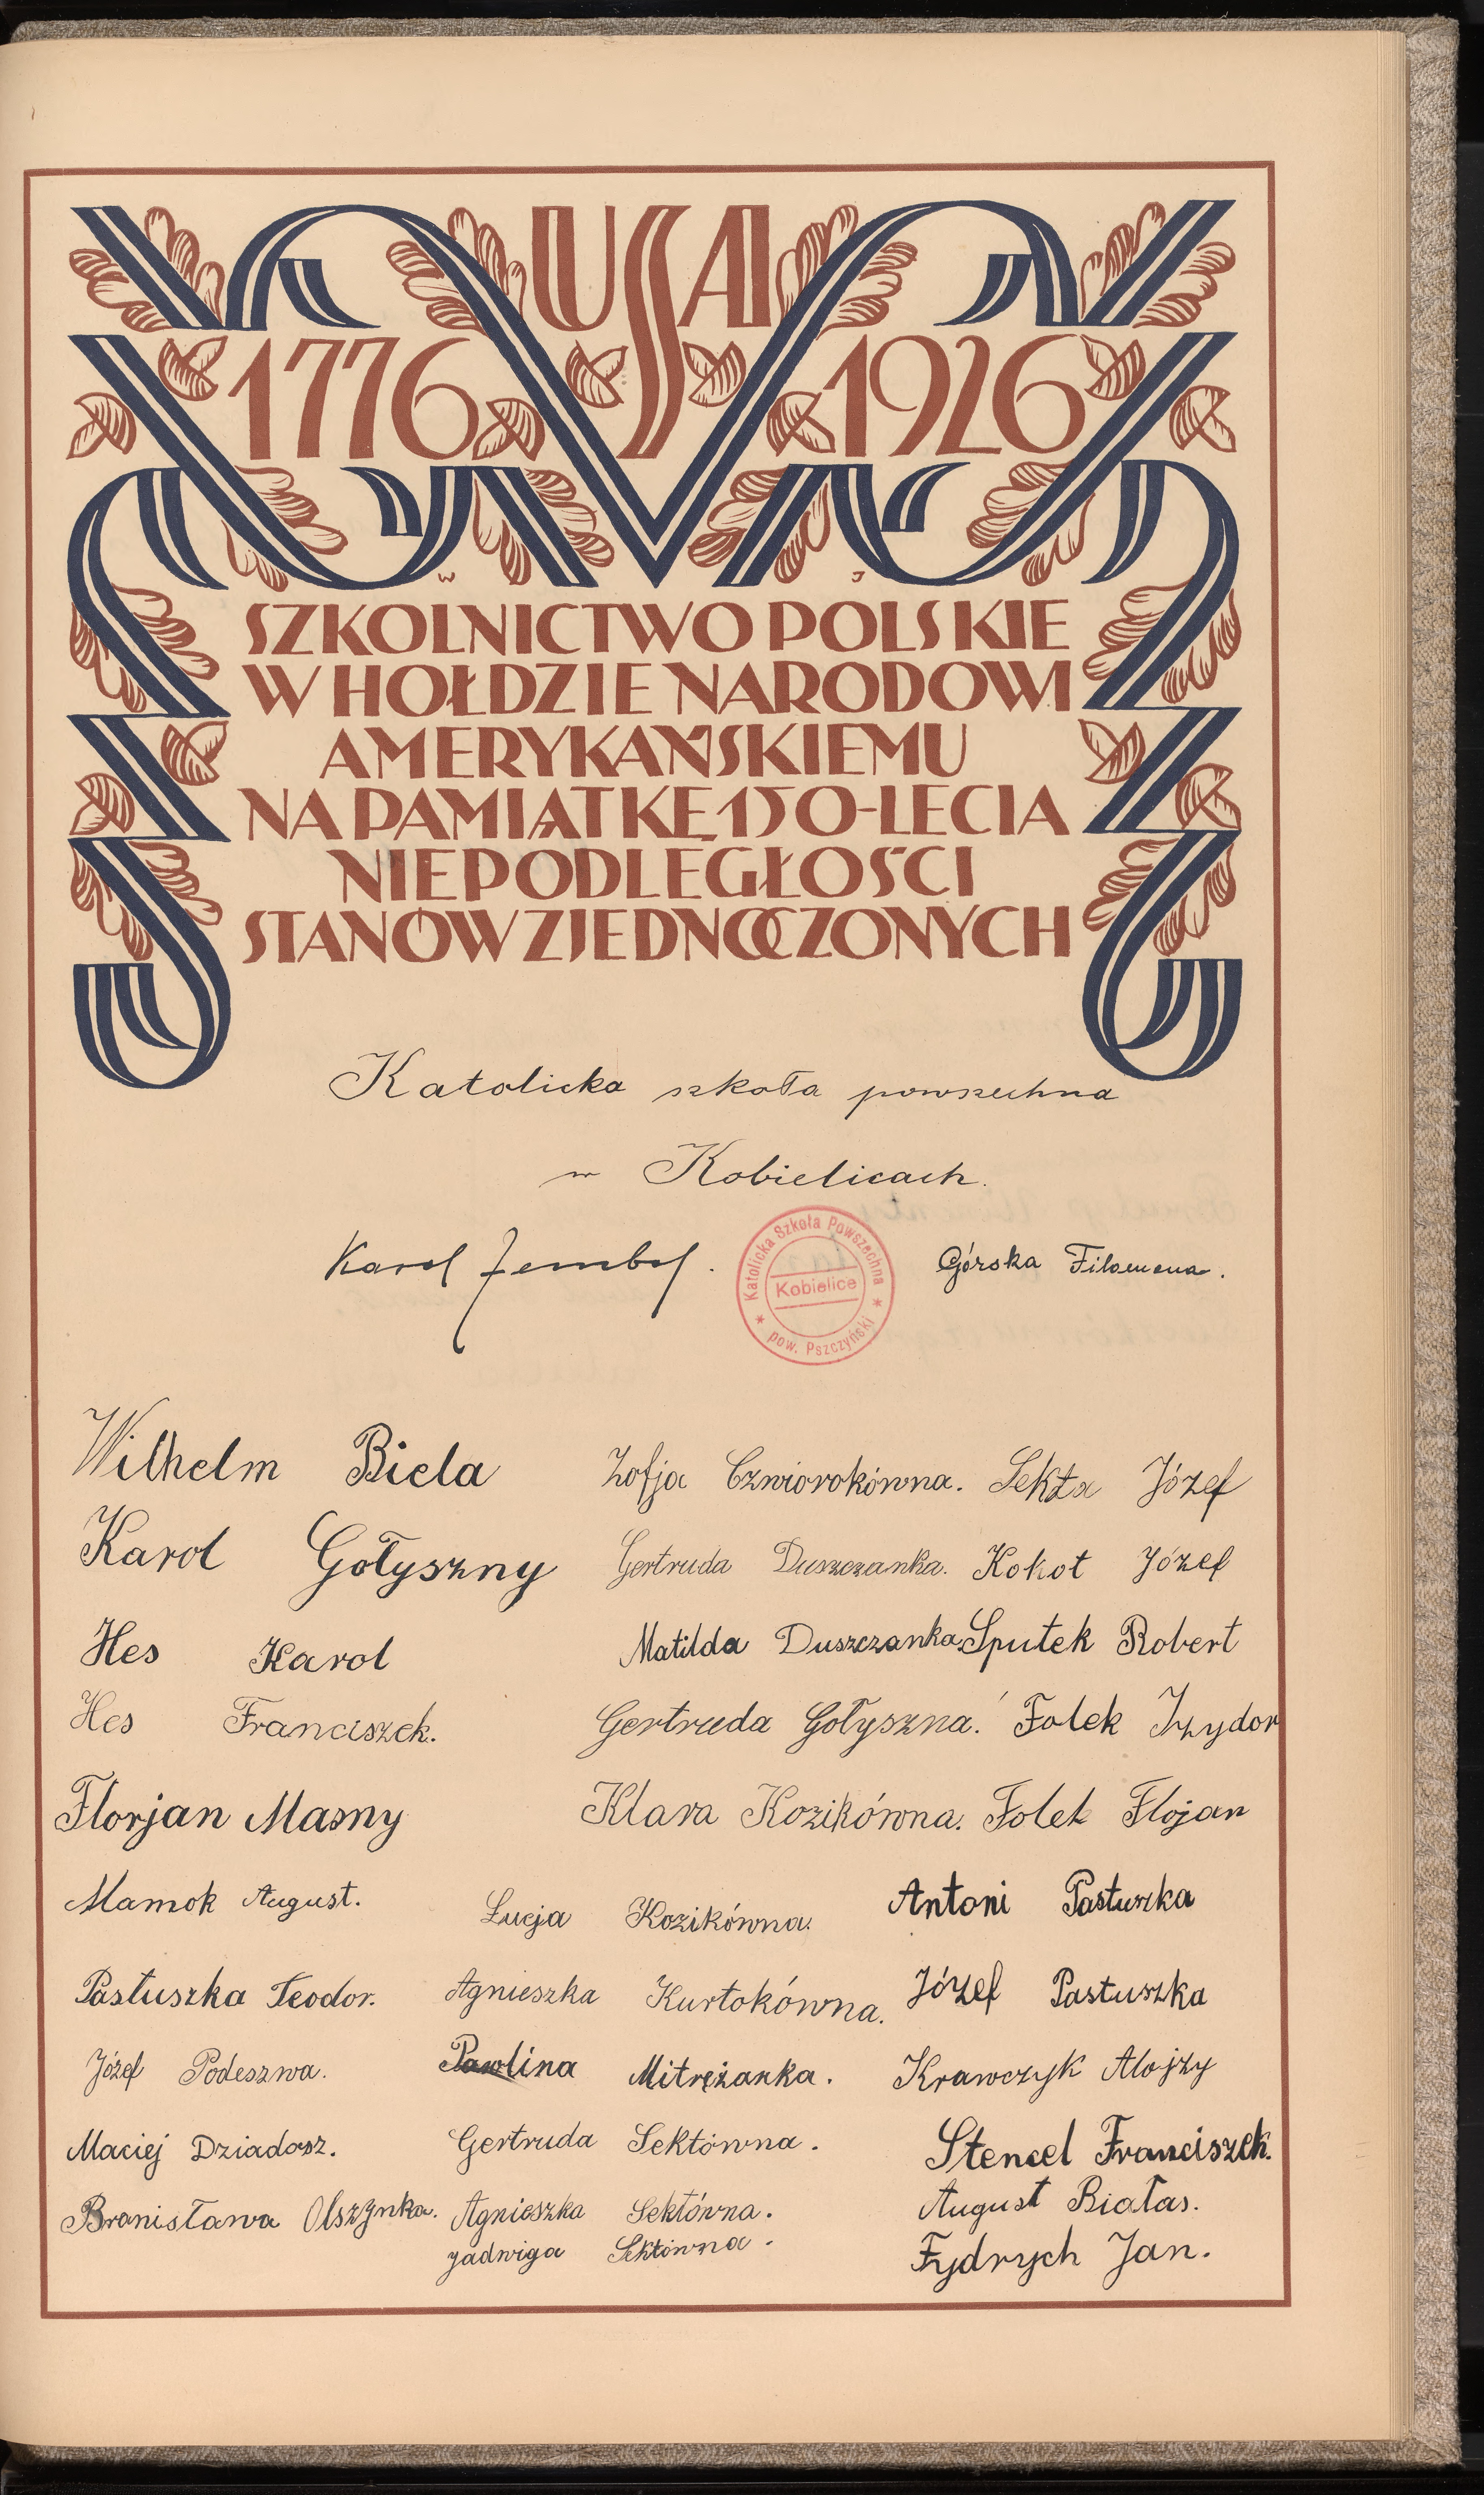 USA
1776 1926
W J
SZKOLNICTWO POLSKIE
W HOŁDZIE NARODOWI
AMERYKAŃSKIEMU
NA PAMIĄTKĘ 150-LECIA
NIEPODLEGŁOŚCI
STANÓW ZJEDNOCZONYCH
Katolicka szkoła powszechna
w Kobielicach.
Karol
Katolicka Szkoła Powszechna
Kobielice
* pow. Pszczyński *
Górska Filomena.
Wilhelm Biela
Zofja Czwiorokówna.
Sekta Józef
Karol Gołyszny
Gertruda Duszczanka.
Kokot Józef
Hes Karol
Matilda Duszczanka.
Sputek Robert
Hes Franciszek.
Gertruda Gołyszna.
Folek Izydor
Florjan Masny
Klara Kozikówna.
Folek Flojan
Mamok August.
Łucja Kozikówna.
Antoni Pastuszka
Pastuszka Teodor.
Agnieszka Kurtokówna.
Józef Pastuszka
Józef Podeszwa.
Pawlina Mitrężanka.
Krawczyk Alojzy
Maciej Dziadosz.
Gertruda Sektówna.
Stencel Franciszek.
Bronisława Olszynka.
Agnieszka Sektówna.
August Białas.
Jadwiga Sektówna.
Fydrych Jan.